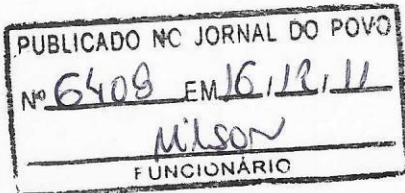 PUBLICADO NO JORNAL DO POVO
Nº 6409 EM 16,12,11
Nilson
FUNCIONÁRIO